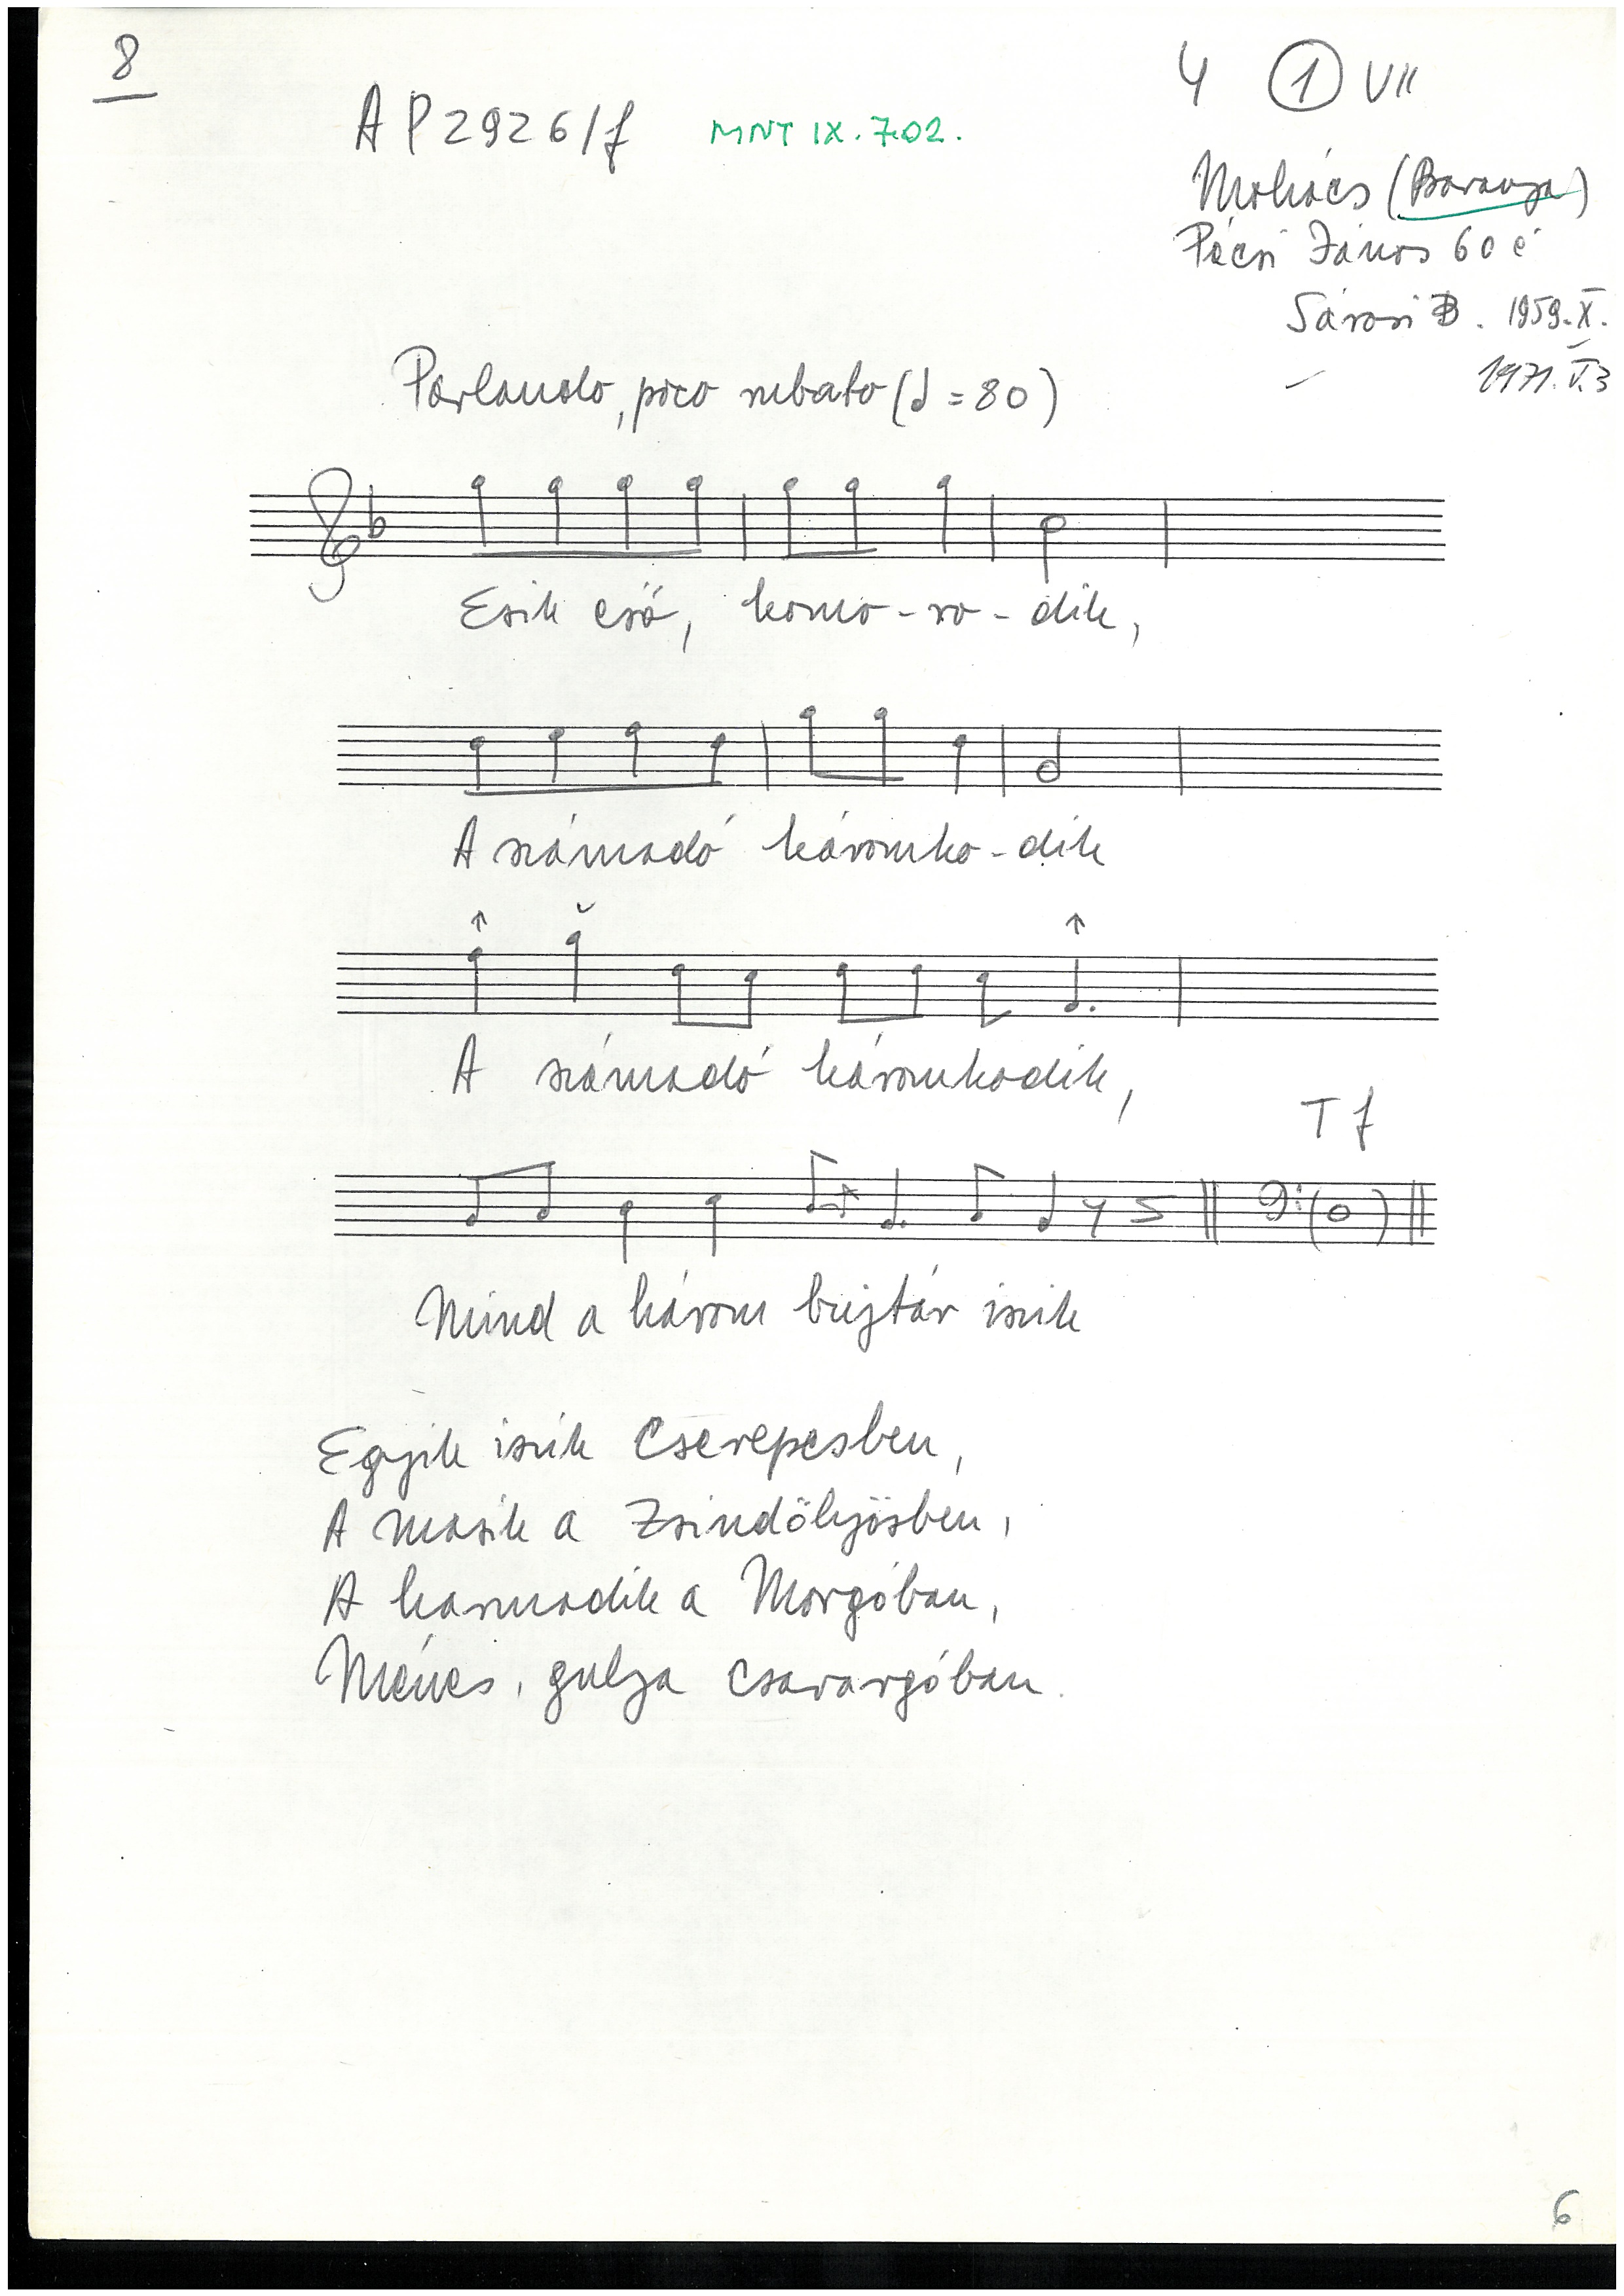 8
4 ① VII
AP 2926/f MNT IX. 702.
Mohács (Baranya)
Pécsi János 60 é
Sárosi B. 1959. X.
1971. V. 3
Parlando, poco rubato (♩ = 80)
Esik eső, komo-ro-dik,
A számadó káromko-dik
A számadó káromkodik,
T f
Mind a három bujtár iszik
Egyik iszik Cserepesben,
A masik a Zsindölyösben,
A harmadik a Morgóban,
Ménes, gulya csavargóban.
6